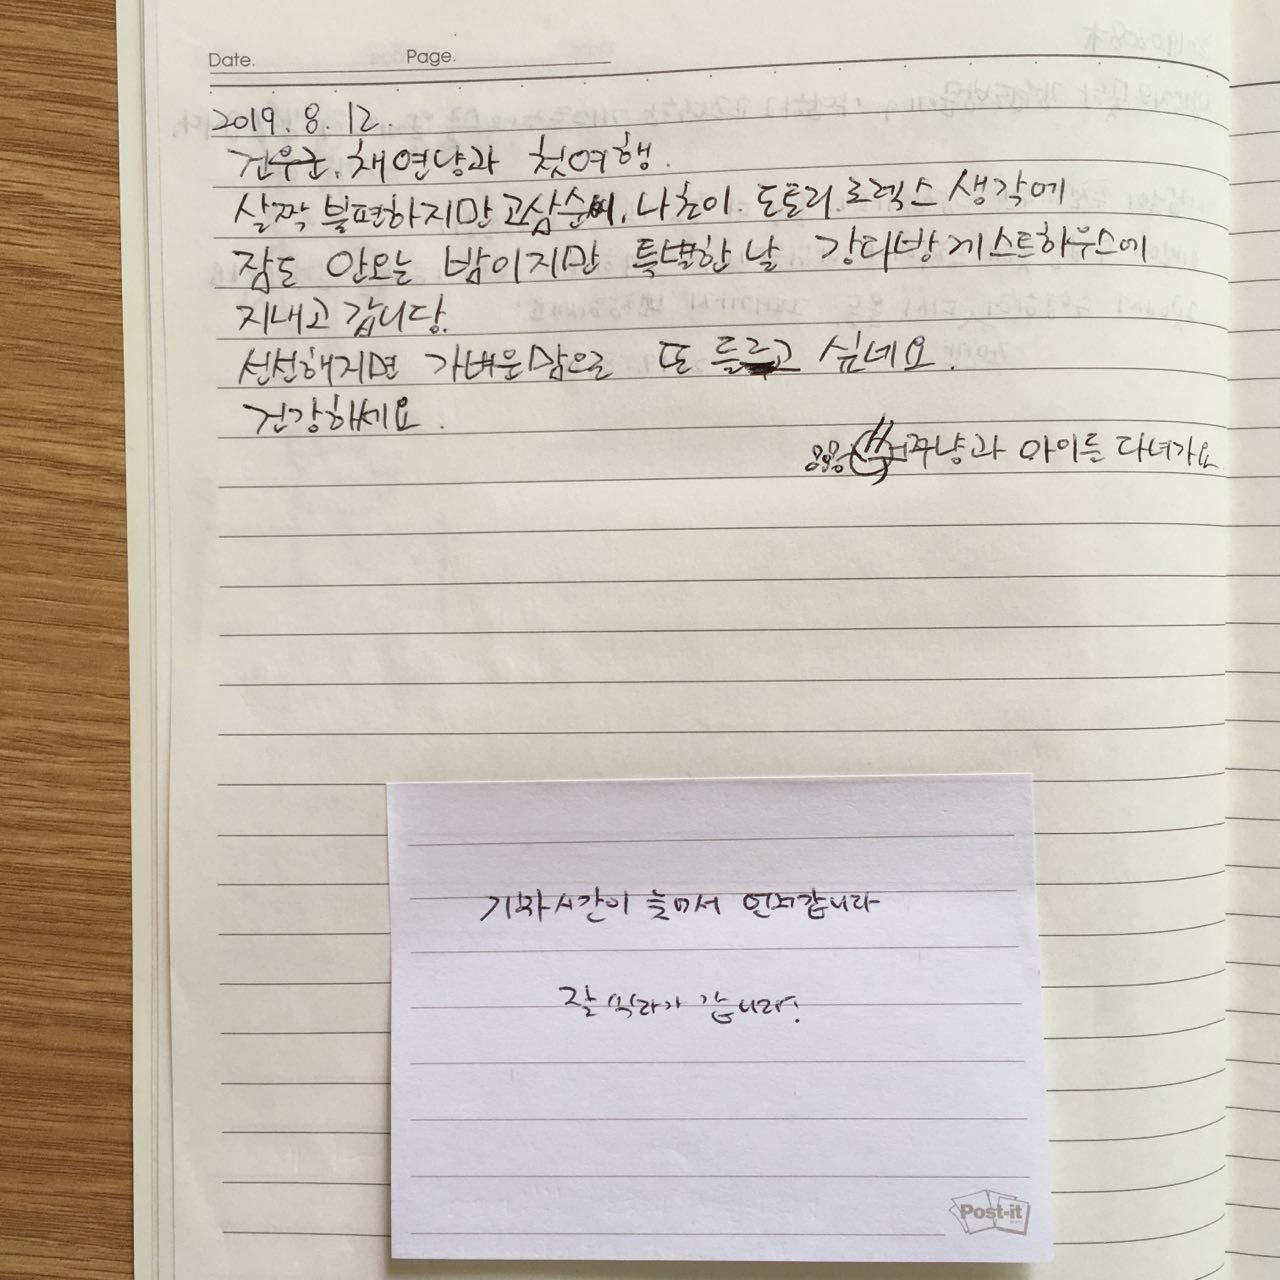 Date. Page.
2019. 8. 12.
건우군, 채연냥과 첫여행.
살짝 불편하지만 고삼순씨, 나초이. 도토리. 로렉스 생각에
잠도 안오는 밤이지만 특별한 날 강다방게스트하우스에
지내고 갑니당.
선선해지면 가벼운맘으로 또 들르고 싶네요.
건강하세요.
쭈냥과 아이들 다녀가요
기차시간이 늦어서 먼저갑니다
잘 쉬다가 갑니다!
Post-it